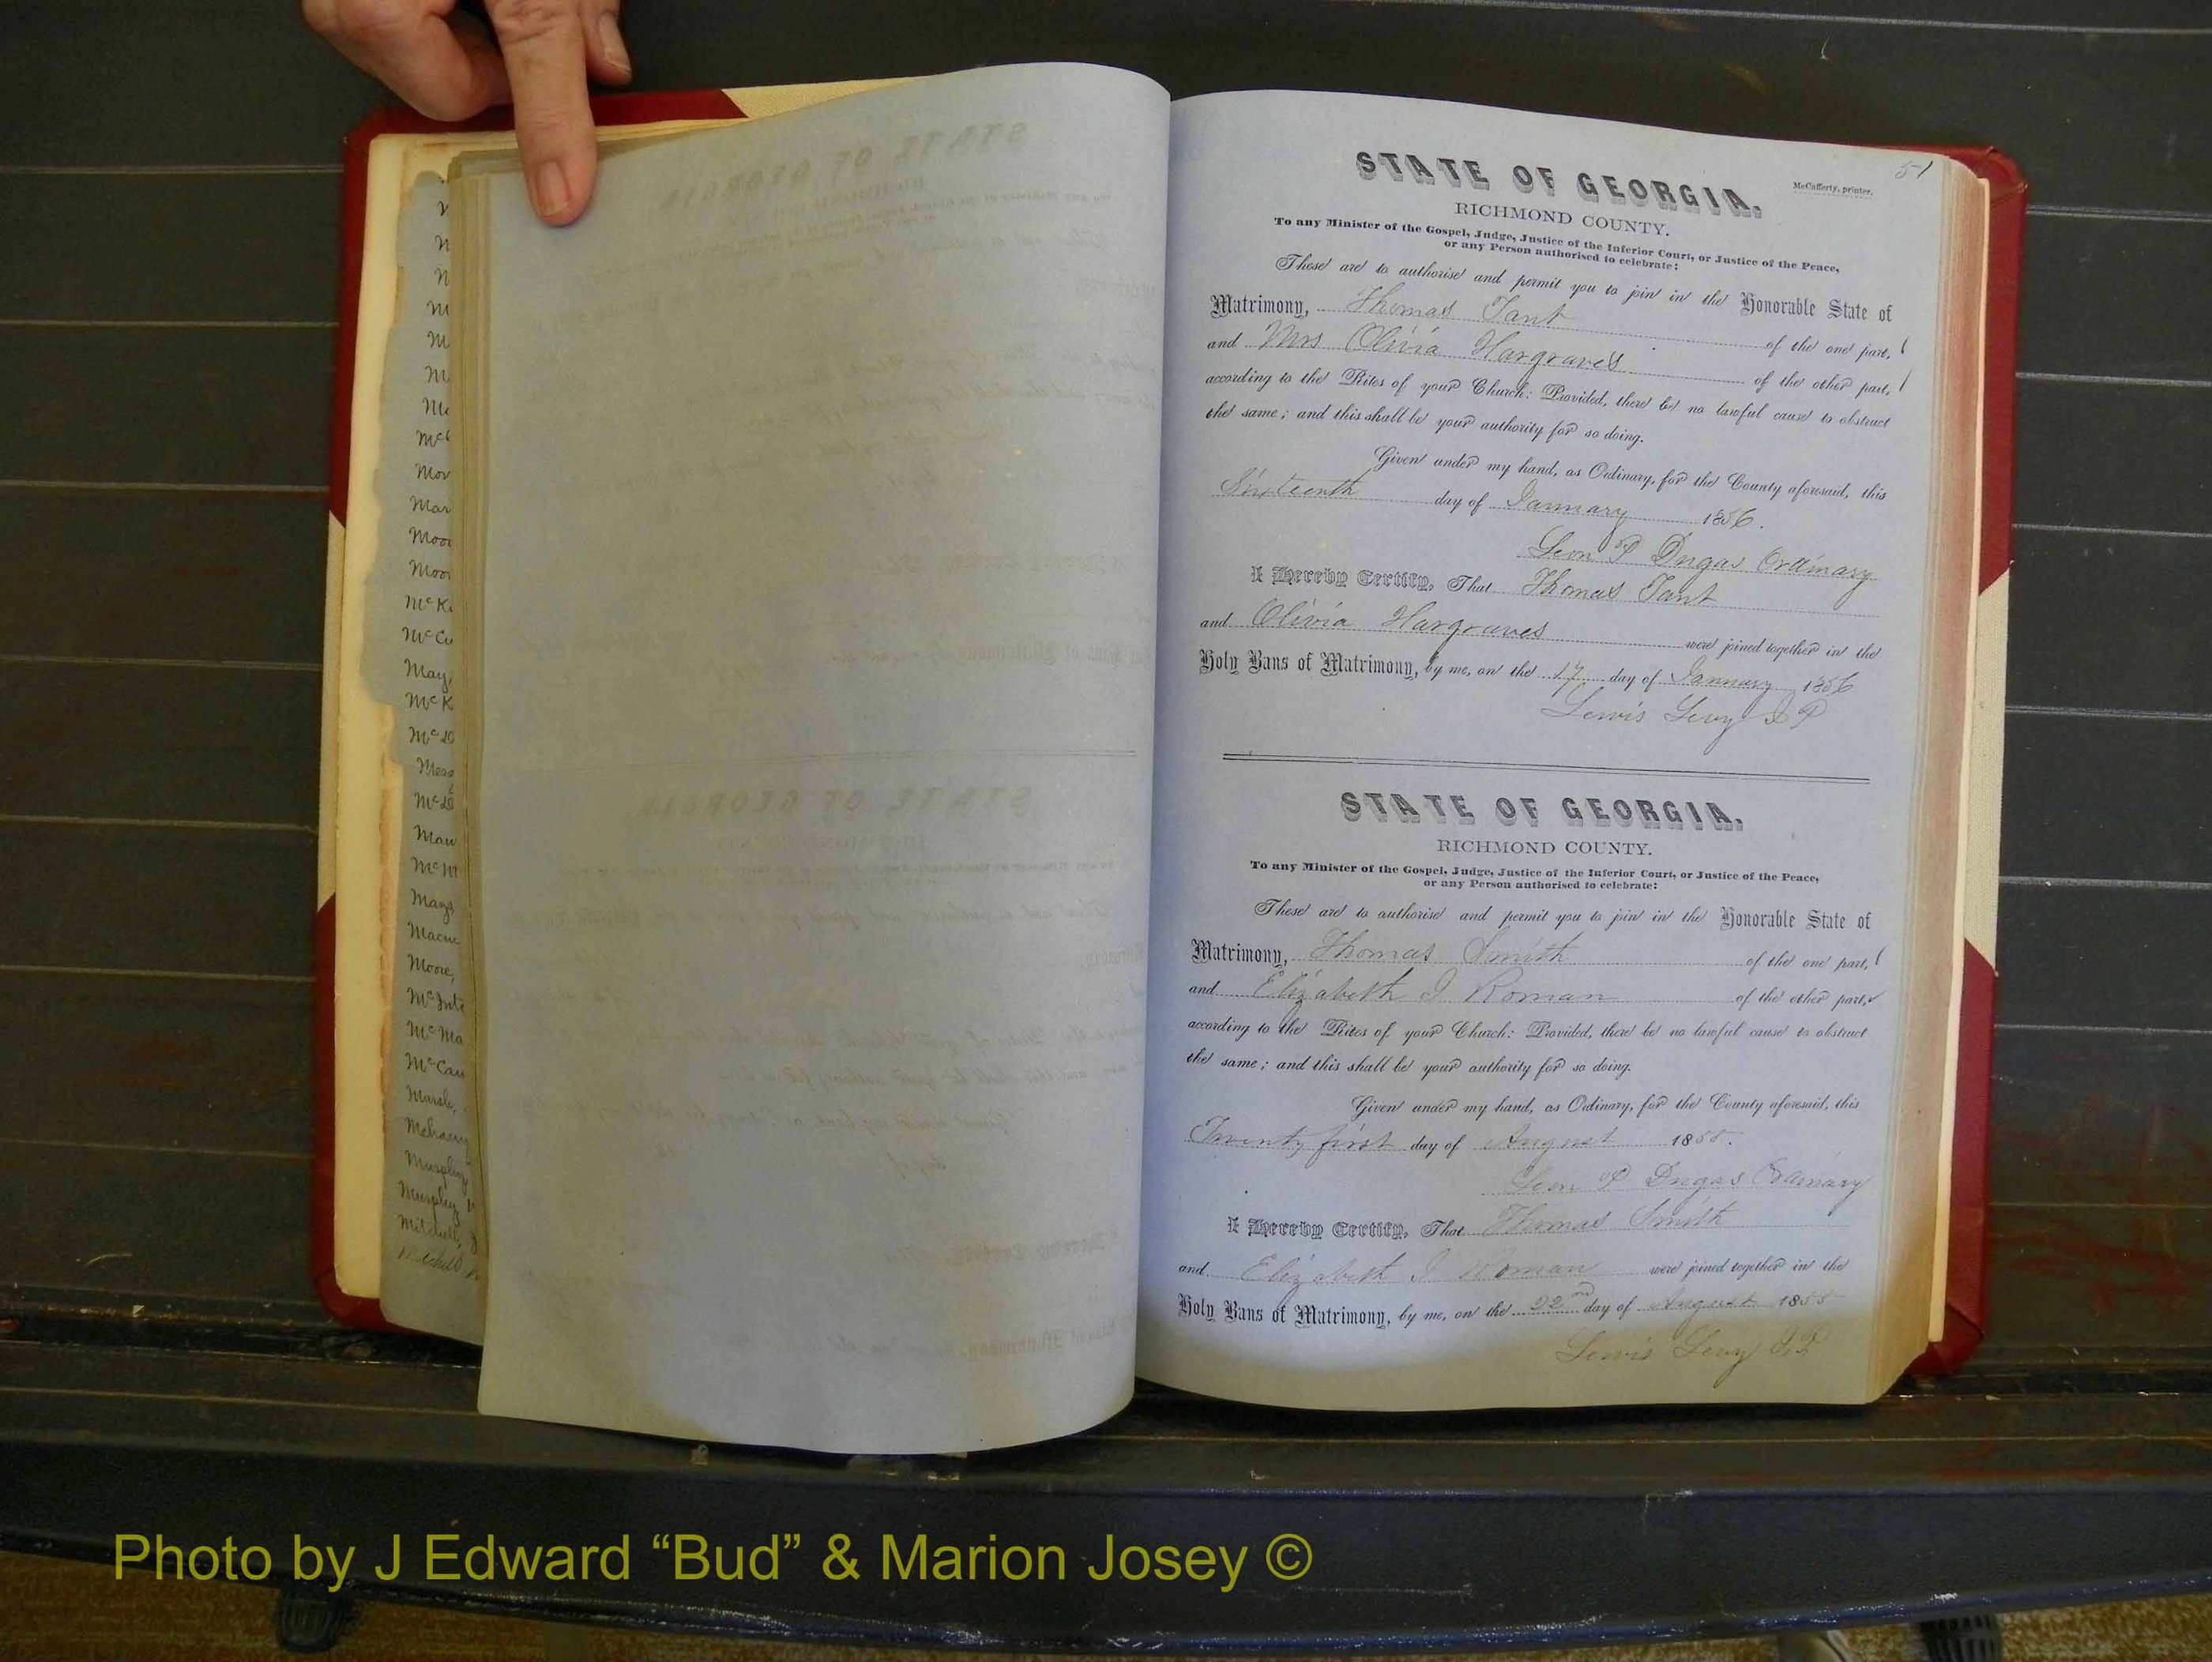 51
McCafferty, printer.
STATE OF GEORGIA.
RICHMOND COUNTY.
To any Minister of the Gospel, Judge, Justice of the Inferior Court, or Justice of the Peace,
or any Person authorised to celebrate:
These are to authorise and permit you to join in the Honorable State of
Matrimony, Thomas Tant
of the one part,
and Mrs Olivia Hargraves
of the other part,
according to the Rites of your Church: Provided, there be no lawful cause to obstruct
the same; and this shall be your authority for so doing.
Given under my hand, as Ordinary, for the County aforesaid, this
Sixteenth day of January 1856.
Leon P Dugas Ordinary
I Hereby Certify, That Thomas Tant
and Olivia Hargraves were joined together in the
Holy Bans of Matrimony, by me, on the 17 day of January 1856
Lewis Levy J P
STATE OF GEORGIA.
RICHMOND COUNTY.
To any Minister of the Gospel, Judge, Justice of the Inferior Court, or Justice of the Peace,
or any Person authorised to celebrate:
These are to authorise and permit you to join in the Honorable State of
Matrimony, Thomas Smith of the one part,
and Elizabeth J Roman of the other part,
according to the Rites of your Church: Provided, there be no lawful cause to obstruct
the same; and this shall be your authority for so doing.
Given under my hand, as Ordinary, for the County aforesaid, this
Twenty first day of August 1855.
Leon P Dugas Ordinary
I Hereby Certify, That Thomas Smith
and Elizabeth J Roman were joined together in the
Holy Bans of Matrimony, by me, on the 22nd day of August 1855
Lewis Levy J.P.
Photo by J Edward “Bud” & Marion Josey ©